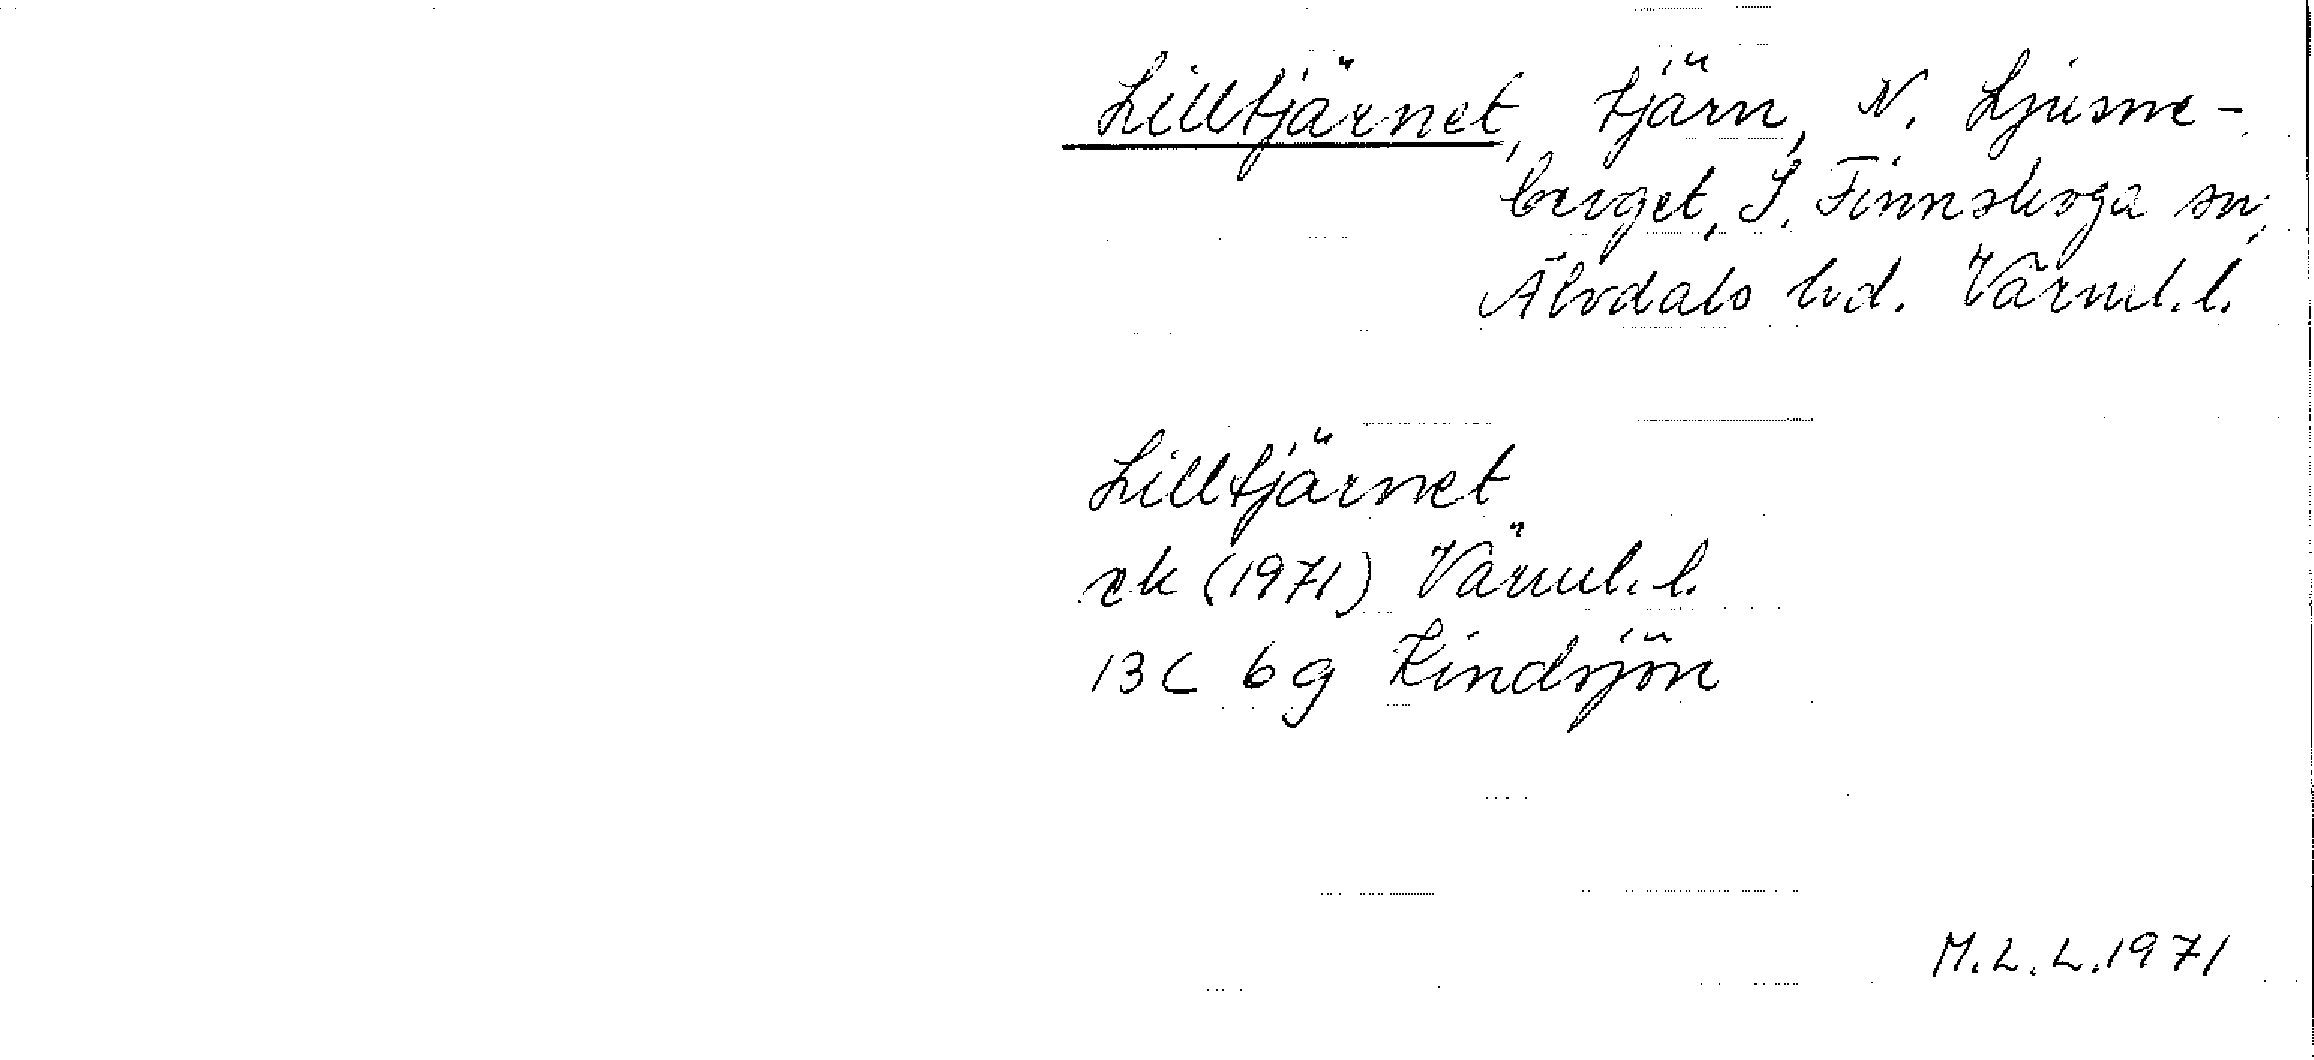 Lilltjärnet, tjärn, N. Ljusne-
berget, S. Finnskoga sn,
Älvdals hd. Värml.l.
Lilltjärnet
ek (1971) Värml.l.
13C 6g Kindsjön
M.L.L.1971